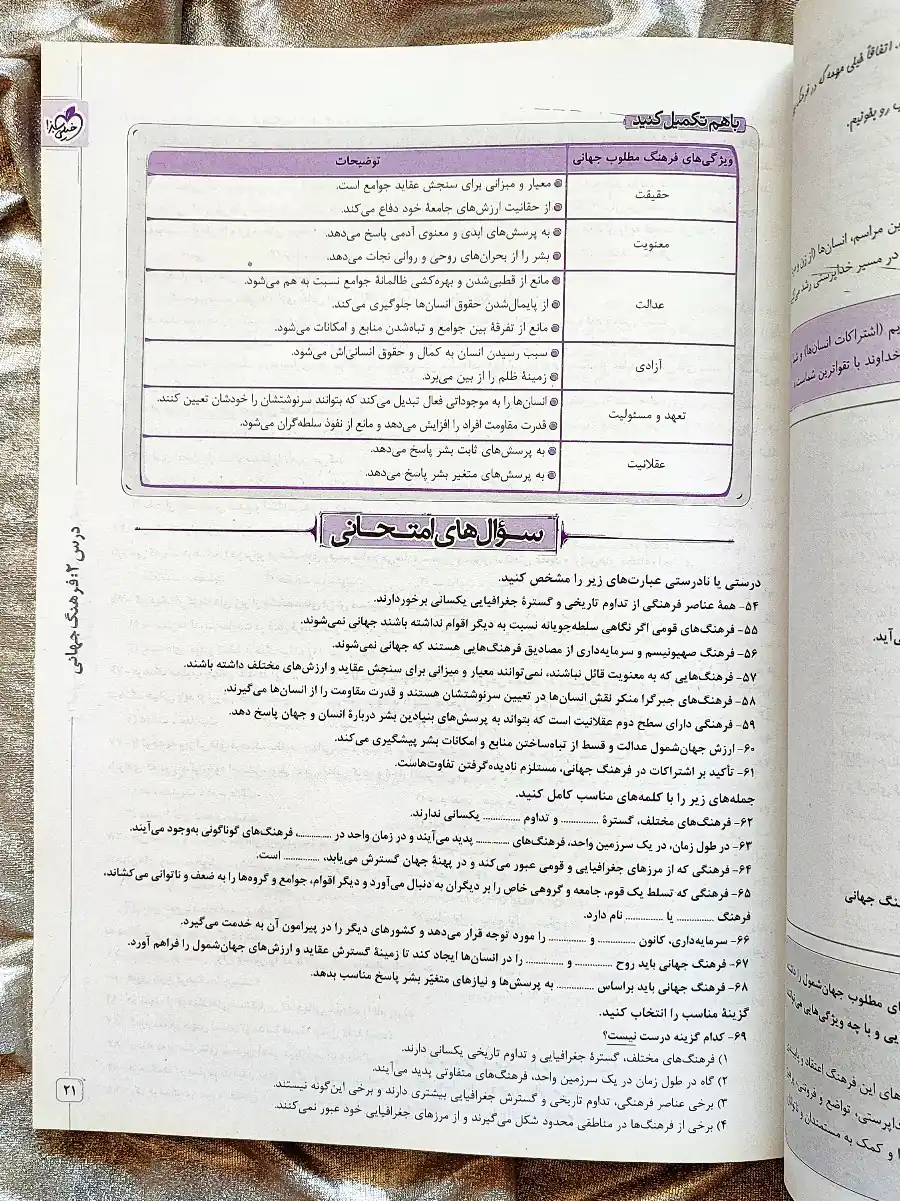 باهم تکمیل کنید
ویژگی‌های فرهنگ مطلوب جهانی
توضیحات
حقیقت
معیار و میزانی برای سنجش عقاید جوامع است.
از حقانیت ارزش‌های جامعهٔ خود دفاع می‌کند.
معنویت
به پرسش‌های ابدی و معنوی آدمی پاسخ می‌دهد.
بشر را از بحران‌های روحی و روانی نجات می‌دهد.
عدالت
مانع از قطبی‌شدن و بهره‌کشی ظالمانهٔ جوامع نسبت به هم می‌شود.
از پایمال‌شدن حقوق انسان‌ها جلوگیری می‌کند.
مانع از تفرقهٔ بین جوامع و تباه‌شدن منابع و امکانات می‌شود.
آزادی
سبب رسیدن انسان به کمال و حقوق انسانی‌اش می‌شود.
زمینهٔ ظلم را از بین می‌برد.
تعهد و مسئولیت
انسان‌ها را به موجوداتی فعال تبدیل می‌کند که بتوانند سرنوشتشان را خودشان تعیین کنند.
قدرت مقاومت افراد را افزایش می‌دهد و مانع از نفوذ سلطه‌گران می‌شود.
عقلانیت
به پرسش‌های ثابت بشر پاسخ می‌دهد.
به پرسش‌های متغیر بشر پاسخ می‌دهد.
سؤال‌های امتحانی
درستی یا نادرستی عبارت‌های زیر را مشخص کنید.
۵۴- همهٔ عناصر فرهنگی از تداوم تاریخی و گسترهٔ جغرافیایی یکسانی برخوردارند.
۵۵- فرهنگ‌های قومی اگر نگاهی سلطه‌جویانه نسبت به دیگر اقوام نداشته باشند جهانی نمی‌شوند.
۵۶- فرهنگ صهیونیسم و سرمایه‌داری از مصادیق فرهنگ‌هایی هستند که جهانی نمی‌شوند.
۵۷- فرهنگ‌هایی که به معنویت قائل نباشند، نمی‌توانند معیار و میزانی برای سنجش عقاید و ارزش‌های مختلف داشته باشند.
۵۸- فرهنگ‌های جبرگرا منکر نقش انسان‌ها در تعیین سرنوشتشان هستند و قدرت مقاومت را از انسان‌ها می‌گیرند.
۵۹- فرهنگی دارای سطح دوم عقلانیت است که بتواند به پرسش‌های بنیادین بشر دربارهٔ انسان و جهان پاسخ دهد.
۶۰- ارزش جهان‌شمول عدالت و قسط از تباه‌ساختن منابع و امکانات بشر پیشگیری می‌کند.
۶۱- تأکید بر اشتراکات در فرهنگ جهانی، مستلزم نادیده‌گرفتن تفاوت‌هاست.
جمله‌های زیر را با کلمه‌های مناسب کامل کنید.
۶۲- فرهنگ‌های مختلف، گسترهٔ ............ و تداوم ............ یکسانی ندارند.
۶۳- در طول زمان، در یک سرزمین واحد، فرهنگ‌های ............ پدید می‌آیند و در زمان واحد در ............، فرهنگ‌های گوناگونی به‌وجود می‌آیند.
۶۴- فرهنگی که از مرزهای جغرافیایی و قومی عبور می‌کند و در پهنهٔ جهان گسترش می‌یابد، ............ است.
۶۵- فرهنگی که تسلط یک قوم، جامعه و گروهی خاص را بر دیگران به دنبال می‌آورد و دیگر اقوام، جوامع و گروه‌ها را به ضعف و ناتوانی می‌کشاند،
فرهنگ ............ یا ............ نام دارد.
۶۶- سرمایه‌داری، کانون ............ و ............ را مورد توجه قرار می‌دهد و کشورهای دیگر را در پیرامون آن به خدمت می‌گیرد.
۶۷- فرهنگ جهانی باید روح ............ و ............ را در انسان‌ها ایجاد کند تا زمینهٔ گسترش عقاید و ارزش‌های جهان‌شمول را فراهم آورد.
۶۸- فرهنگ جهانی باید براساس ............ به پرسش‌ها و نیازهای متغیّر بشر پاسخ مناسب بدهد.
گزینهٔ مناسب را انتخاب کنید.
۶۹- کدام گزینه درست نیست؟
۱) فرهنگ‌های مختلف، گسترهٔ جغرافیایی و تداوم تاریخی یکسانی دارند.
۲) گاه در طول زمان در یک سرزمین واحد، فرهنگ‌های متفاوتی پدید می‌آیند.
۳) برخی عناصر فرهنگی، تداوم تاریخی و گسترش جغرافیایی بیشتری دارند و برخی این‌گونه نیستند.
۴) برخی از فرهنگ‌ها در مناطقی محدود شکل می‌گیرند و از مرزهای جغرافیایی خود عبور نمی‌کنند.
درس ۲: فرهنگ جهانی
۲۱
خیلی سبز
اتفاقاً خیلی مهمه که در
رو بخونیم.
مراسم، انسان‌ها
در مسیر خداپرستی رشد
(اشتراکات انسان‌ها) و
خداوند با تقواترین شماست
می‌آید.
جهانی
مطلوب جهان‌شمول را
و با چه ویژگی‌هایی
این فرهنگ اعتقاد و
تواضع و فروتنی،
و کمک به مستمندان و